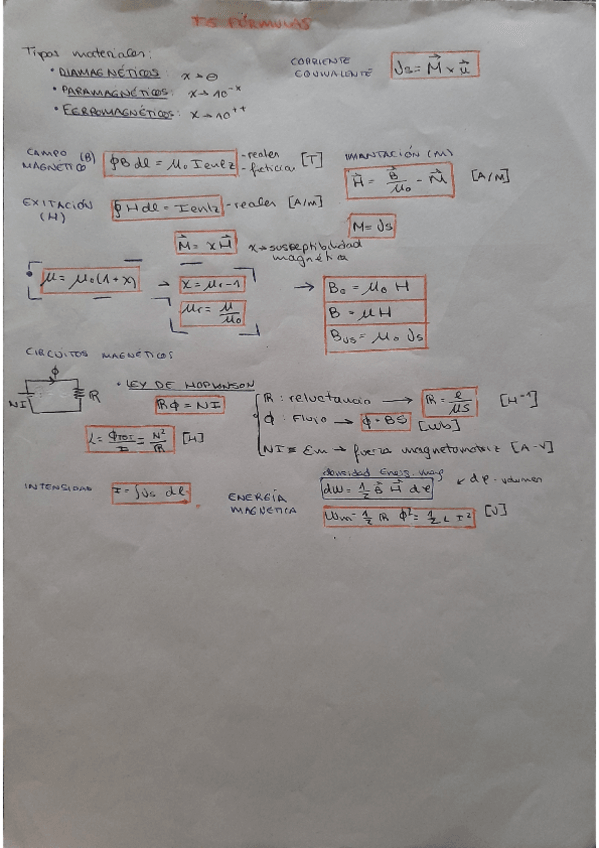 T5 FÓRMULAS
Tipos materiales:
• DIAMAGNÉTICOS: x → ⊖
• PARAMAGNÉTICOS: x → 10⁻ˣ
• FERROMAGNÉTICOS: x → 10⁺⁺
CORRIENTE EQUIVALENTE Js = M⃗ × u⃗
CAMPO (B) MAGNÉTICO ∮B dl = μ₀ I enlz - reales - ficticias [T]
IMANTACIÓN (M)
H⃗ = B⃗/μ₀ - M⃗ [A/M]
EXITACIÓN (H) ∮H dl = I enlz - reales [A/M]
M = Js
M⃗ = xH⃗ x → susceptibilidad magnética
• μ = μ₀(1+x) → x = μr - 1 → B₀ = μ₀ H
μr = μ/μ₀
B = μH
BJs = μ₀ Js
CIRCUITOS MAGNÉTICOS
Φ
NI
R
• LEY DE HOPKINSON
RΦ = NI
R: reluctancia → R = l/μS [H⁻¹]
Φ: Flujo → Φ = BS [Wb]
NI ≡ Em → fuerza magnetomotriz [A-V]
L = ΦTOT/I = N²/R [H]
INTENSIDAD I = ∫Js dl
densidad energ. mag
ENERGÍA MAGNÉTICA dW = 1/2 B⃗ H⃗ dv ↙ dv. volumen
Wm = 1/2 R Φ² = 1/2 L I² [J]